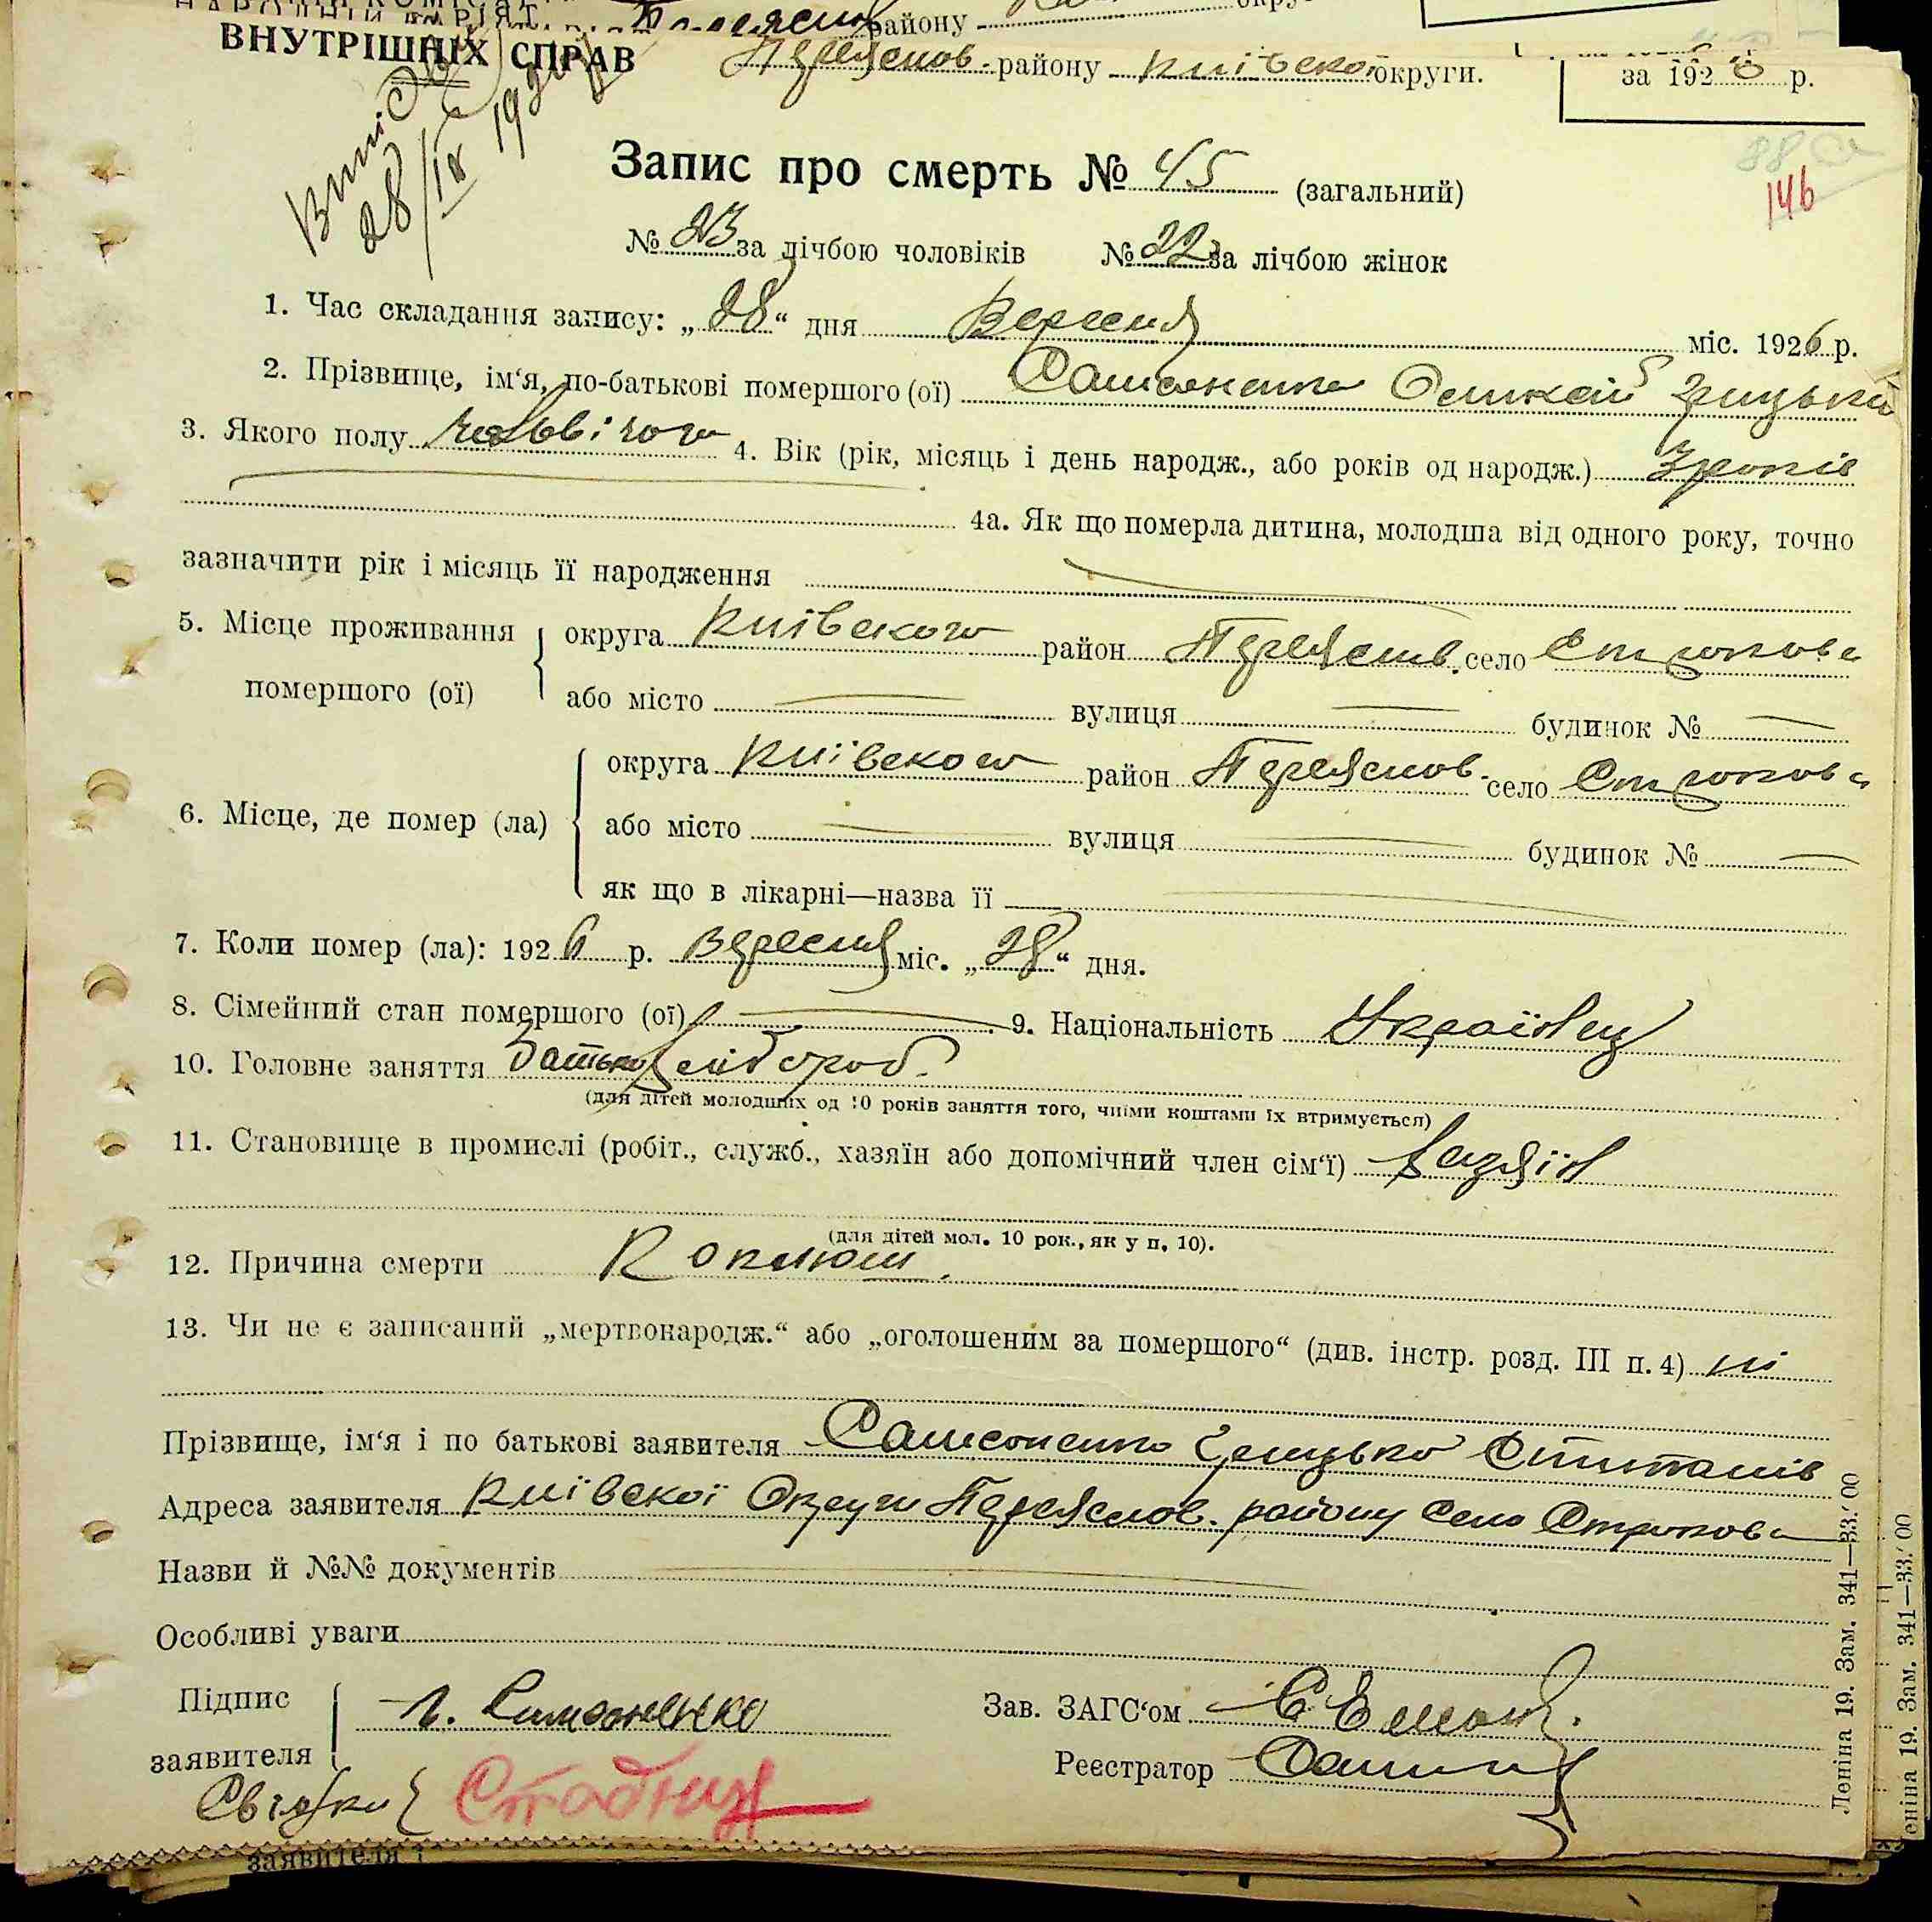 ВНУТРІШНІХ СПРАВ
району
Переяслов. району Київської округи.
за 192 6 р.
28/IX 19
Запис про смерть № 45 (загальний)
88
146
№ 23 за лічбою чоловіків № 22 за лічбою жінок
1. Час складання запису: „28“ дня Вересня міс. 1926 р.
2. Прізвище, ім‘я, по-батькові помершого (ої) Самсоненко Грицьків
3. Якого полу чоловічого 4. Вік (рік, місяць і день народж., або років од народж.) 3 років
4а. Як що померла дитина, молодша від одного року, точно
зазначити рік і місяць її народження
5. Місце проживання помершого (ої) округа Київського район Переяслов. село Строкова
або місто вулиця будинок №
6. Місце, де помер (ла) округа Київського район Переяслов. село Строкова
або місто вулиця будинок №
як що в лікарні—назва її
7. Коли помер (ла): 1926 р. Вересня міс. „28“ дня.
8. Сімейний стан помершого (ої) 9. Національність Українец
10. Головне заняття Батько хлібороб.
(для дітей молодших од 10 років заняття того, чиїми коштами їх втримується)
11. Становище в промислі (робіт., служб., хазяїн або допомічний член сім‘ї) хазяїн
(для дітей мол. 10 рок., як у п. 10).
12. Причина смерти Коклюш.
13. Чи не є записаний „мертвонародж.“ або „оголошеним за помершого“ (див. інстр. розд. III п. 4) ні
Прізвище, ім‘я і по батькові заявителя Самсоненко Грицько Степанів
Адреса заявителя Київскої Округи Переяслов. району село Строкова
Назви й №№ документів
Особливі уваги
Підпис заявителя Г. Самсоненко
Зав. ЗАГС‘ом
Реєстратор
Свідки
Леніна 19. Зам. 341—33.‘00
еніна 19. Зам. 341—33.‘00
заявителя